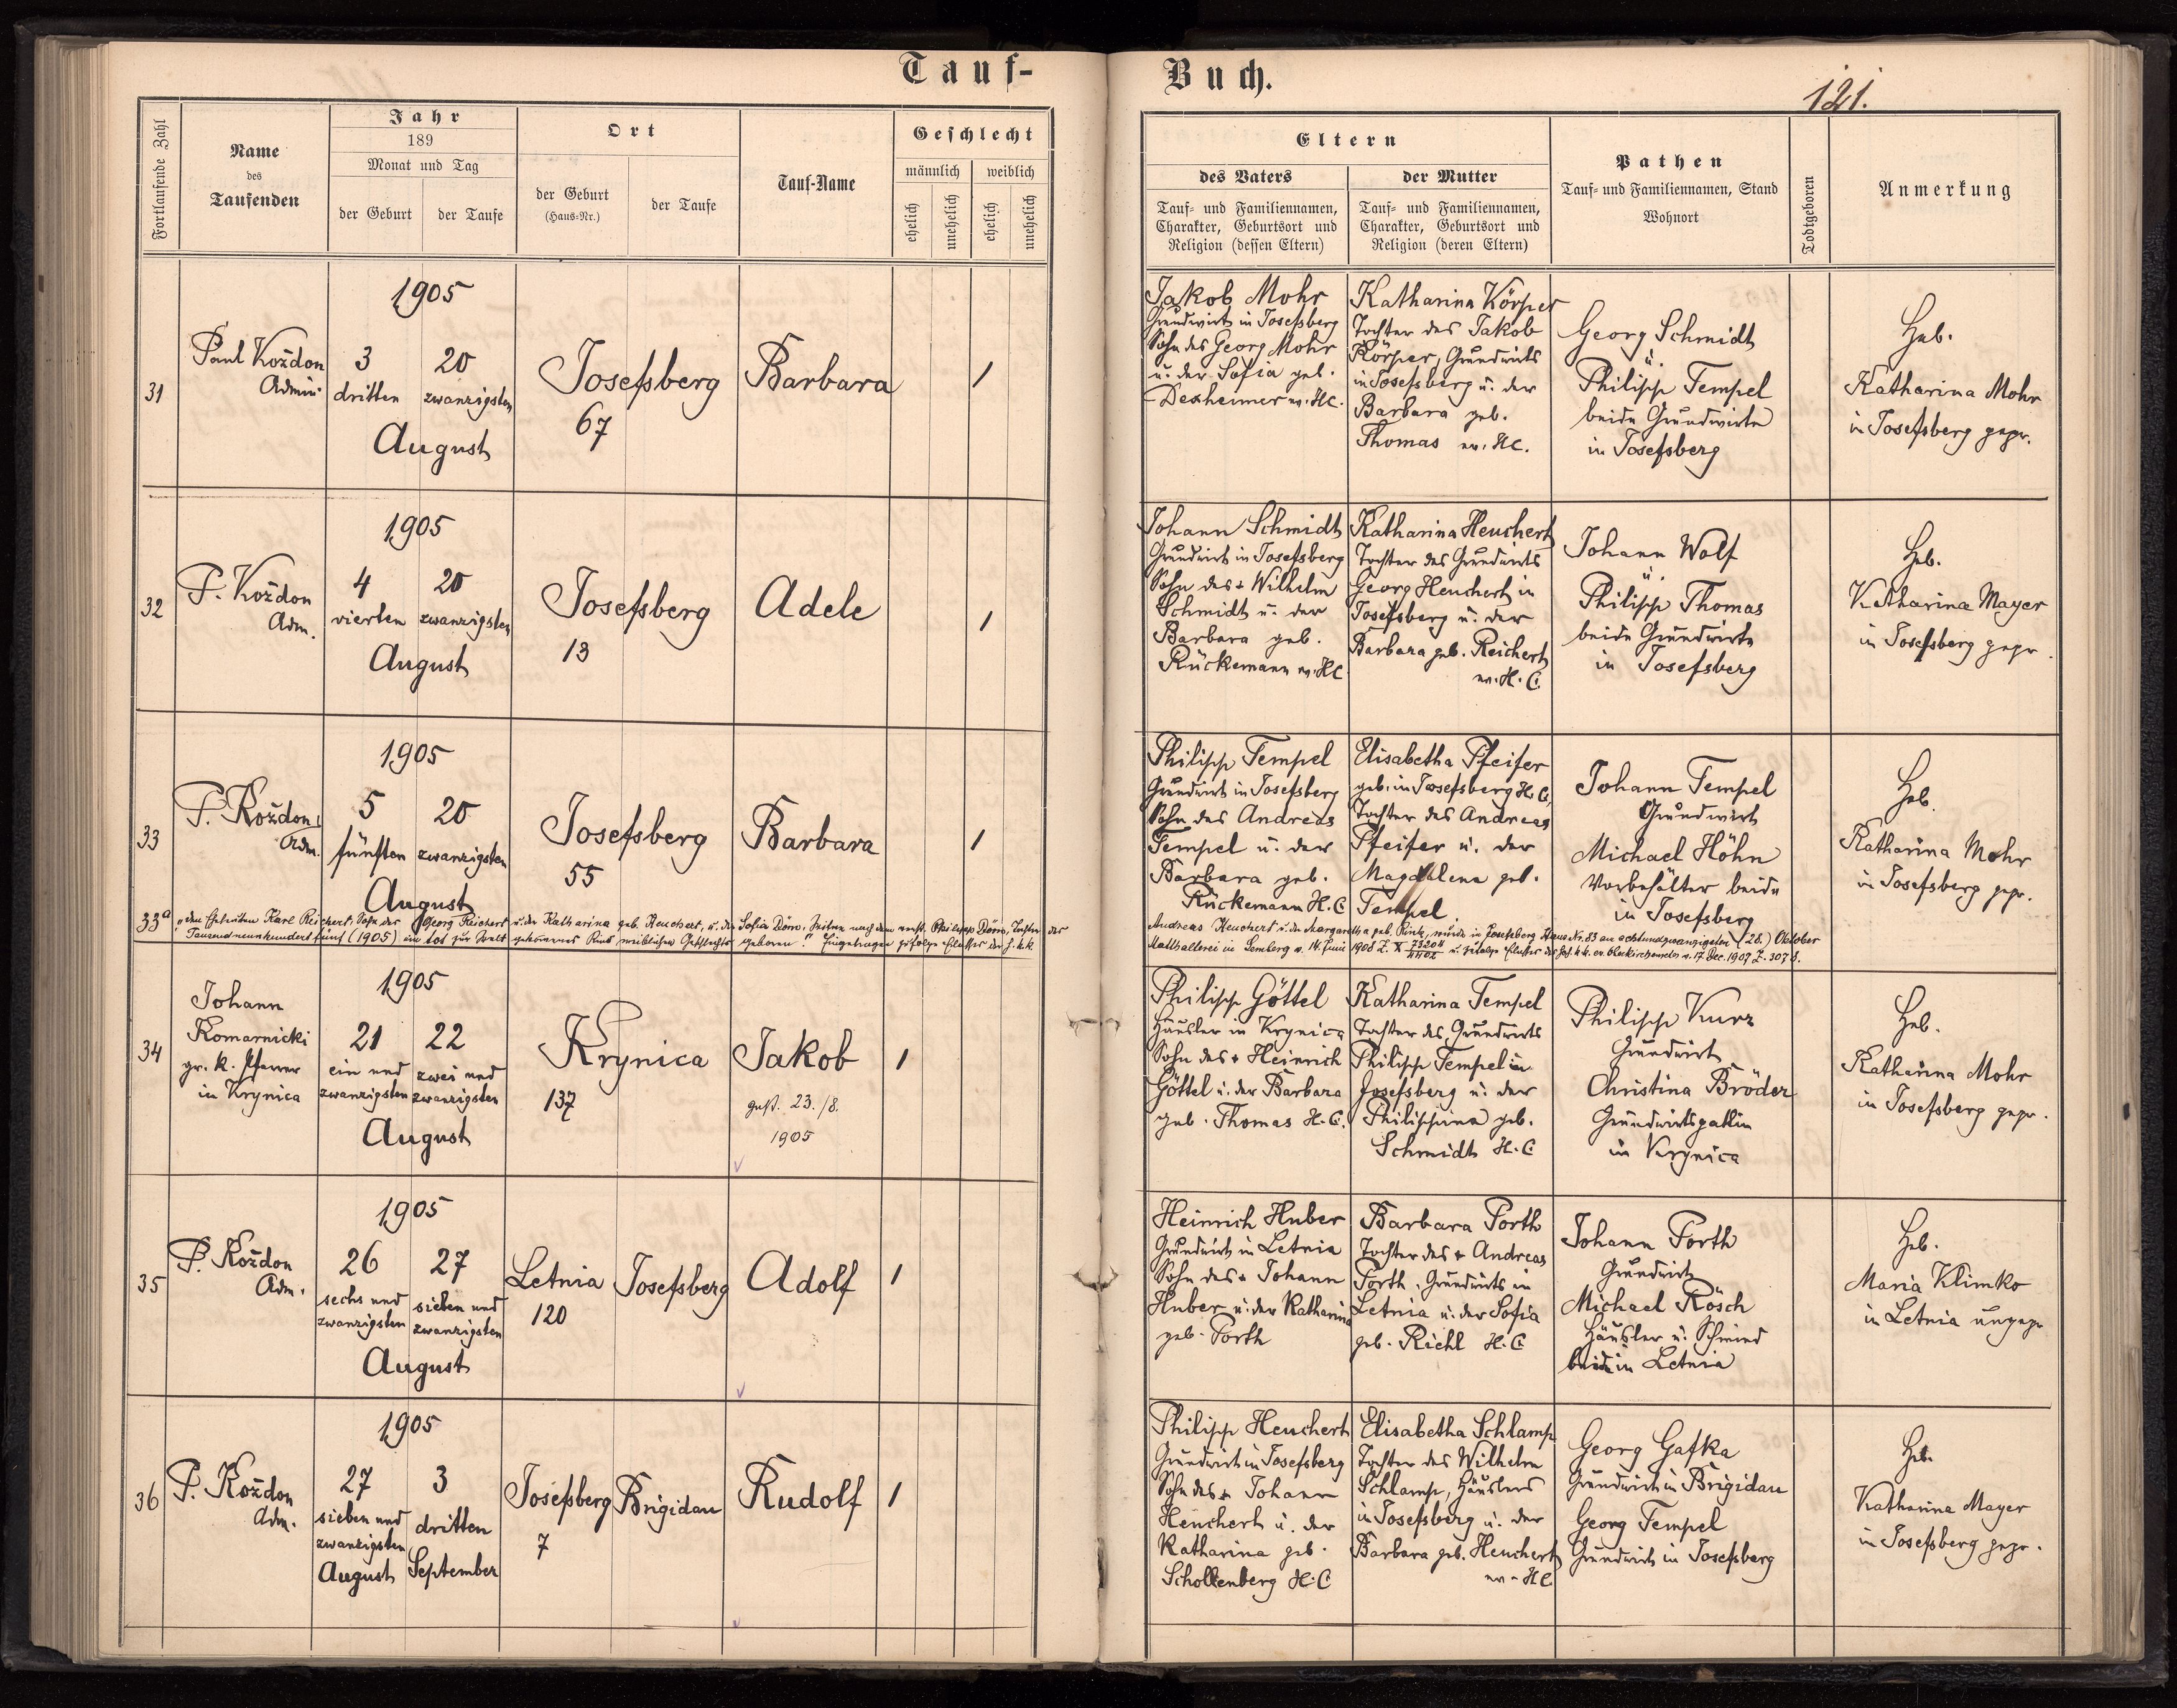 Tauf-
Buch.
121.
Fortlaufende Zahl
Name
des
Taufenden
Jahr
189
Monat und Tag
der Geburt
der Taufe
Ort
der Geburt
(Haus-Nr.)
der Taufe
Tauf-Name
Geschlecht
männlich
weiblich
ehelich
unehelich
ehelich
unehelich
Eltern
des Vaters
Tauf- und Familiennamen,
Charakter, Geburtsort und
Religion (dessen Eltern)
der Mutter
Tauf- und Familiennamen,
Charakter, Geburtsort und
Religion (deren Eltern)
Pathen
Tauf- und Familiennamen, Stand
Wohnort
Todtgeboren
Anmerkung
31
Paul Koždon
Admin.
1905
3
dritten
20
zwanzigsten
August
Josefsberg
67
Barbara
1
Jakob Mohr
Grundwirt in Josefsberg
Sohn des Georg Mohr
u. der Sofia geb.
Dexheimer ev. H.C.
Katharina Körper
Tochter des Jakob
Körper, Grundwirts
in Josefsberg u. der
Barbara geb.
Thomas ev. H.C.
Georg Schmidt
u.
Philipp Tempel
beide Grundwirte
in Josefsberg
Heb.
Katharina Mohr
in Josefsberg gepr.
32
P. Koždon
Adm.
1905
4
vierten
20
zwanzigsten
August
Josefsberg
13
Adele
1
Johann Schmidt
Grundwirt in Josefsberg
Sohn des + Wilhelm
Schmidt u. der
Barbara geb.
Rückemann ev. H.C.
Katharina Heuchert
Tochter des Grundwirts
Georg Heuchert in
Josefsberg u. der
Barbara geb. Reichert
ev. H. C.
Johann Wolf
u.
Philipp Thomas
beide Grundwirte
in Josefsberg
Heb.
Katharina Mayer
in Josefsberg gepr.
33
P. Koždon
Adm.
1905
5
fünften
20
zwanzigsten
August
Josefsberg
55
Barbara
1
Philipp Tempel
Grundwirt in Josefsberg
Sohn des Andreas
Tempel u. der
Barbara geb.
Rückemann H. C.
Elisabetha Pfeifer
geb. in Josefsberg H. C.
Tochter des Andreas
Pfeifer u. der
Magdalena geb.
Tempel.
Johann Tempel
Grundwirt
Michael Höhn
Vorbehälter beide
in Josefsberg
Heb.
Katharina Mohr
in Josefsberg gepr.
33a „den Eheleuten Karl Reichert, Sohn des Georg Reichert u. der Katharina geb. Heuchert, u. der Sofia Dörr, Witwe nach dem verst. Philipp Dörr, Tochter des
Andreas Heuchert u. der Margaretha geb. Rink, wurde in Josefsberg Haus Nr. 83 am achtundzwanzigsten (28.) Oktober
Tausendneunhundertfünf (1905) ein tot zur Welt gekommenes Kind weiblichen Geschlechts geboren." Eingetragen zufolge Erlasses der h. k.k.
Statthalterei in Lemberg v. 14. Juni 1908 Z. X u. zufolge Erlasses des h. k.k. ev. Oberkirchenrates v. 17. Dec. 1907 Z. 3078.
34
Johann
Komarnicki
gr. k. Pfarrer
in Krynica
1905
21
ein und
zwanzigsten
22
zwei und
zwanzigsten
August
Krynica
137
Jakob
gest. 23./8.
1905
1
Philipp Göttel
Häusler in Krynica
Sohn des + Heinrich
Göttel u. der Barbara
geb. Thomas H. C.
Katharina Tempel
Tochter des Grundwirts
Philipp Tempel in
Josefsberg u. der
Philippina geb.
Schmidt H. C.
Philipp Kurz
Grundwirt
Christina Bröder
Grundwirtsgattin
in Krynica
Heb.
Katharina Mohr
in Josefsberg gepr.
35
P. Koždon
Adm.
1905
26
sechs und
zwanzigsten
27
sieben und
zwanzigsten
August
Letnia
120
Josefsberg
Adolf
1
Heinrich Huber
Grundwirt in Letnia
Sohn des + Johann
Huber u. der Katharina
geb. Porth
Barbara Porth
Tochter des + Andreas
Porth, Grundwirts in
Letnia u. der Sofia
geb. Richl H. C.
Johann Porth
Grundwirt
Michael Rösch
Häusler u. Schmied
beide in Letnia
Heb.
Maria Klimko
in Letnia ungepr.
36
P. Koždon
Adm.
1905
27
sieben und
zwanzigsten
August
3
dritten
September
Josefsberg
7
Brigidau
Rudolf
1
Philipp Heuchert
Grundwirt in Josefsberg
Sohn des + Johann
Heuchert u. der
Katharina geb.
Schollenberg H. C.
Elisabetha Schlamp
Tochter des Wilhelm
Schlamp, Häuslers
in Josefsberg u. der
Barbara geb. Heuchert
ev. H.C.
Georg Gafka
Grundwirt in Brigidau
Georg Tempel
Grundwirt in Josefsberg
Heb.
Katharina Mayer
in Josefsberg gepr.